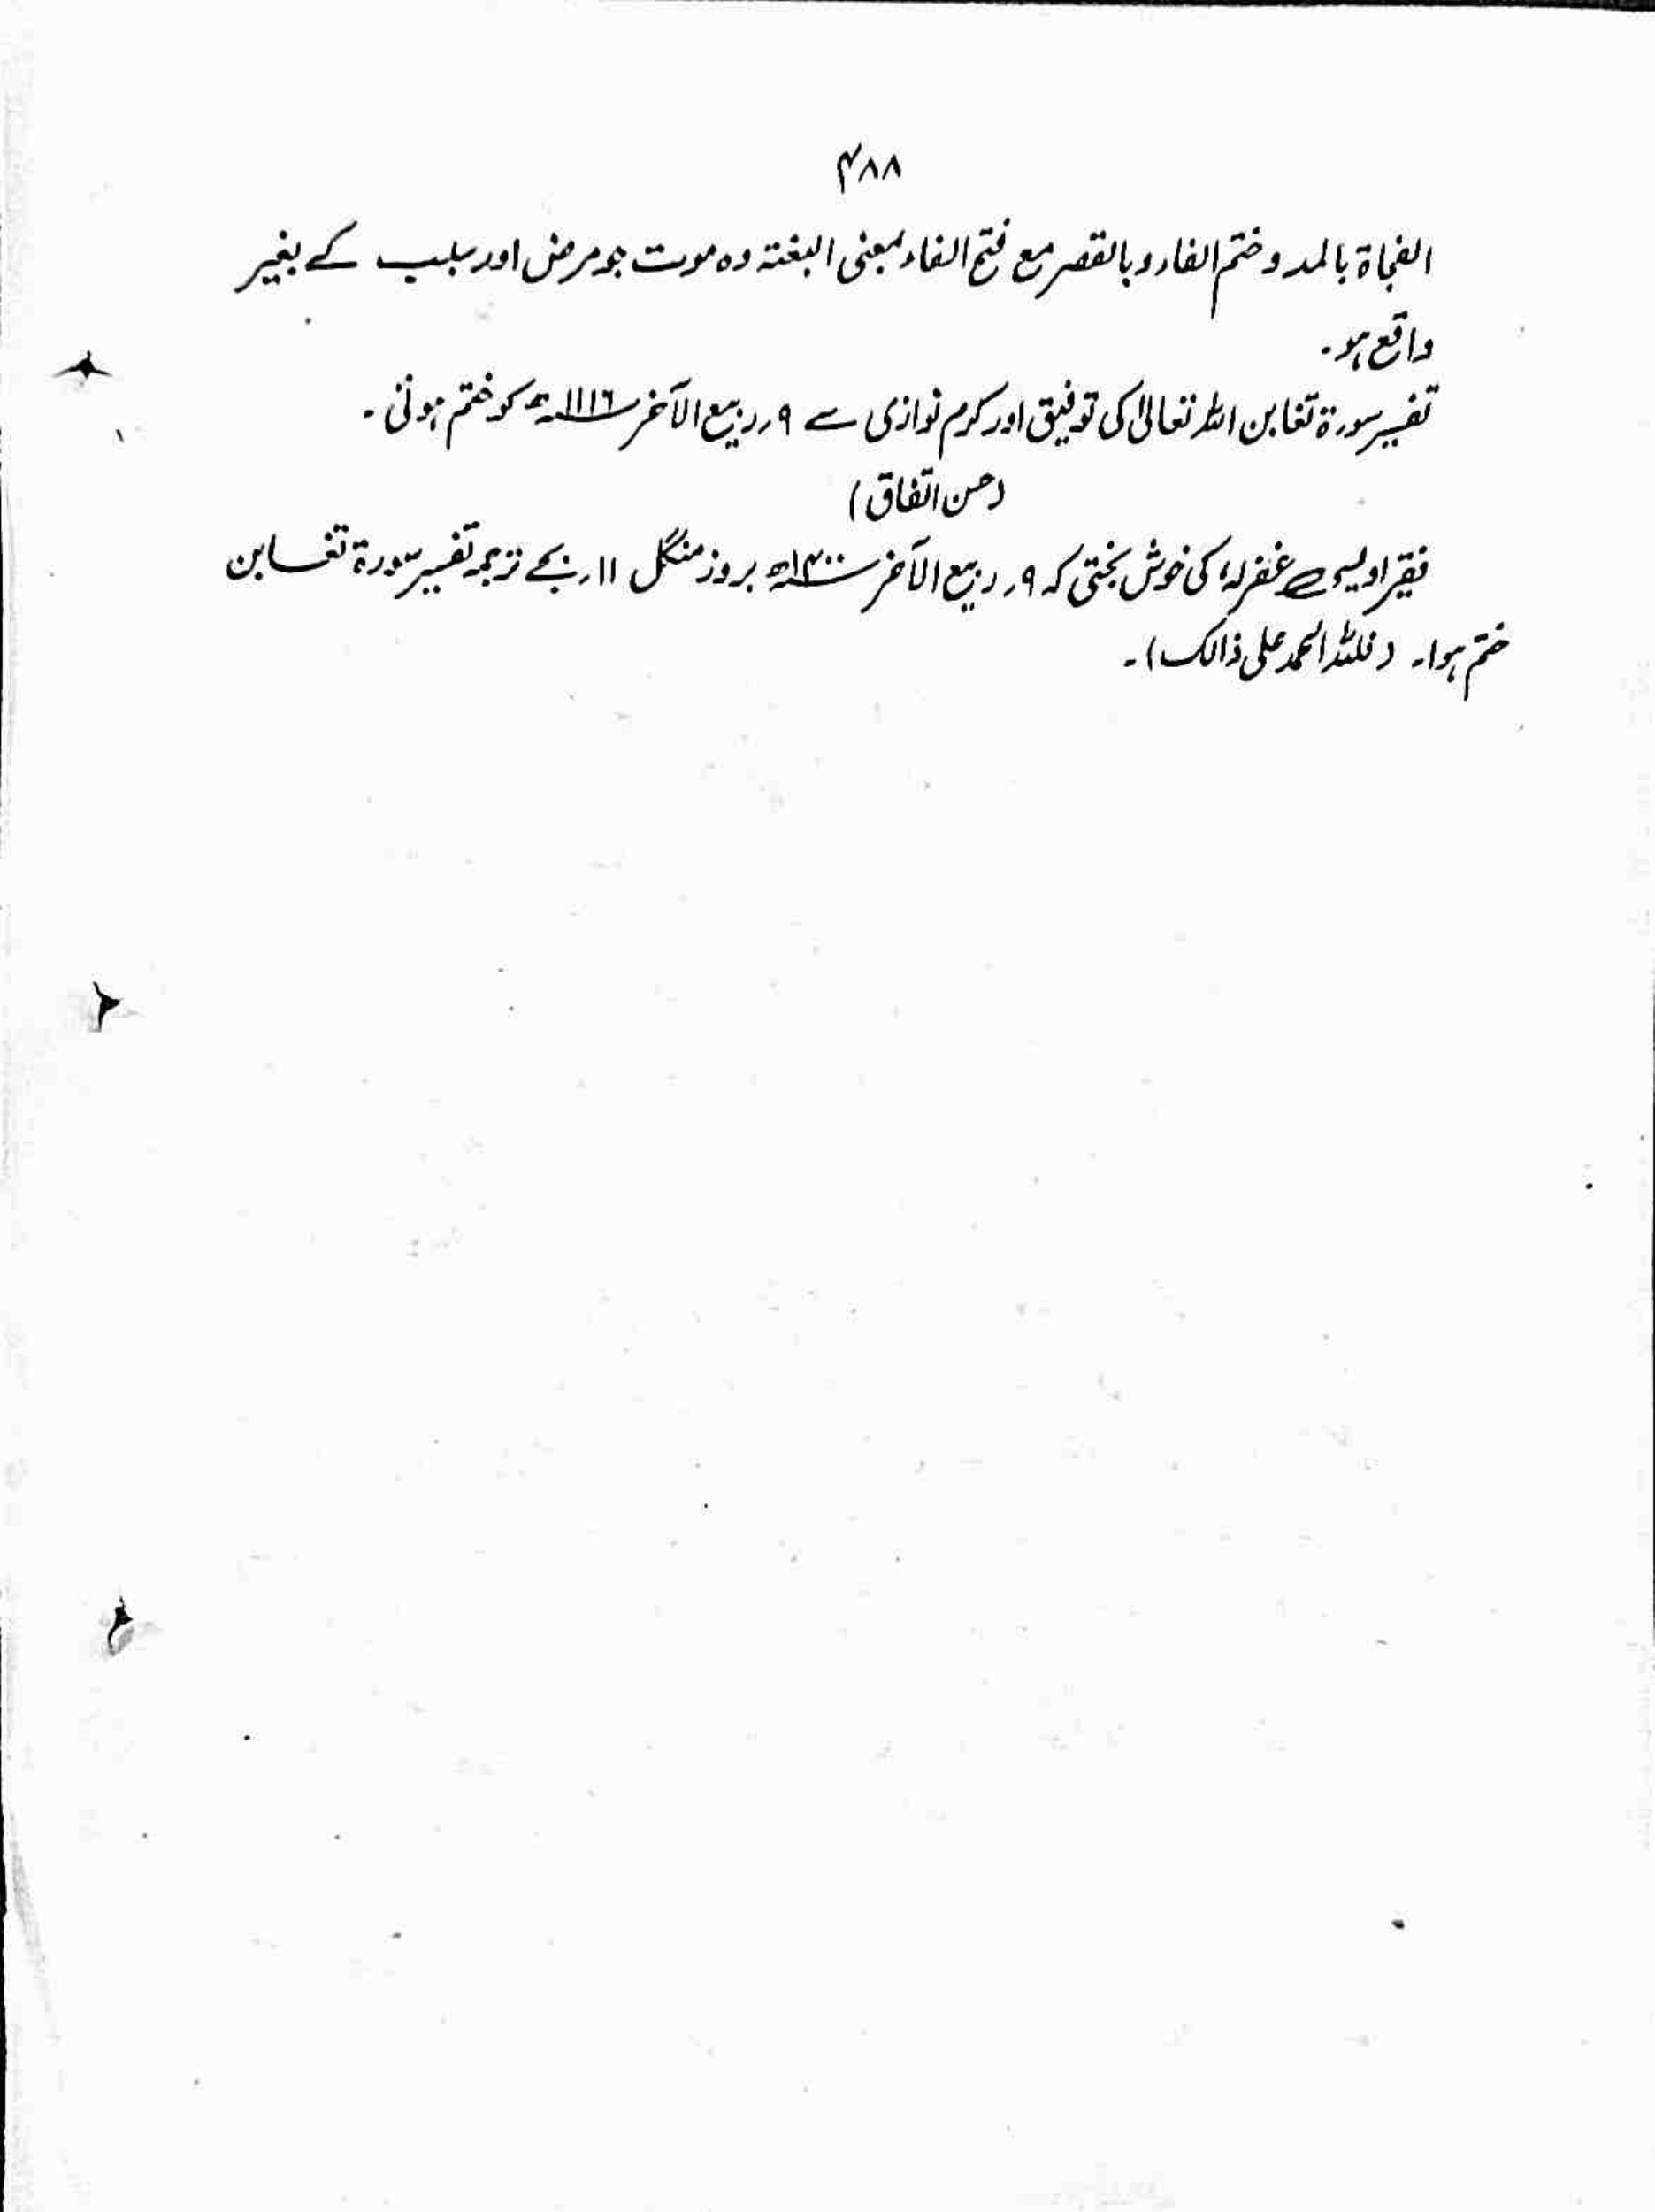 ۴۸۸
الفجاۃ بالمد و ختم الفاء و بالقصر مع فتح الفاء بمعنی البغتۃ وہ موت جو مرض اور سبب کے بغیر
واقع ہو۔
تفسیر سورۃ تغابن اللہ تعالیٰ کی توفیق اور کرم نوازی سے ۹ ربیع الآخر ۱۱۱۶ھ کو ختم ہوئی۔
(حسن اتفاق)
فقیر اویسی غفرلہٗ کی خوش بختی کہ ۹ ربیع الآخر ۱۴۰۰ھ بروز منگل ۱۱ بجے ترجمہ تفسیر سورۃ تغابن
ختم ہوا۔ (فللہ الحمد علی ذالک)۔